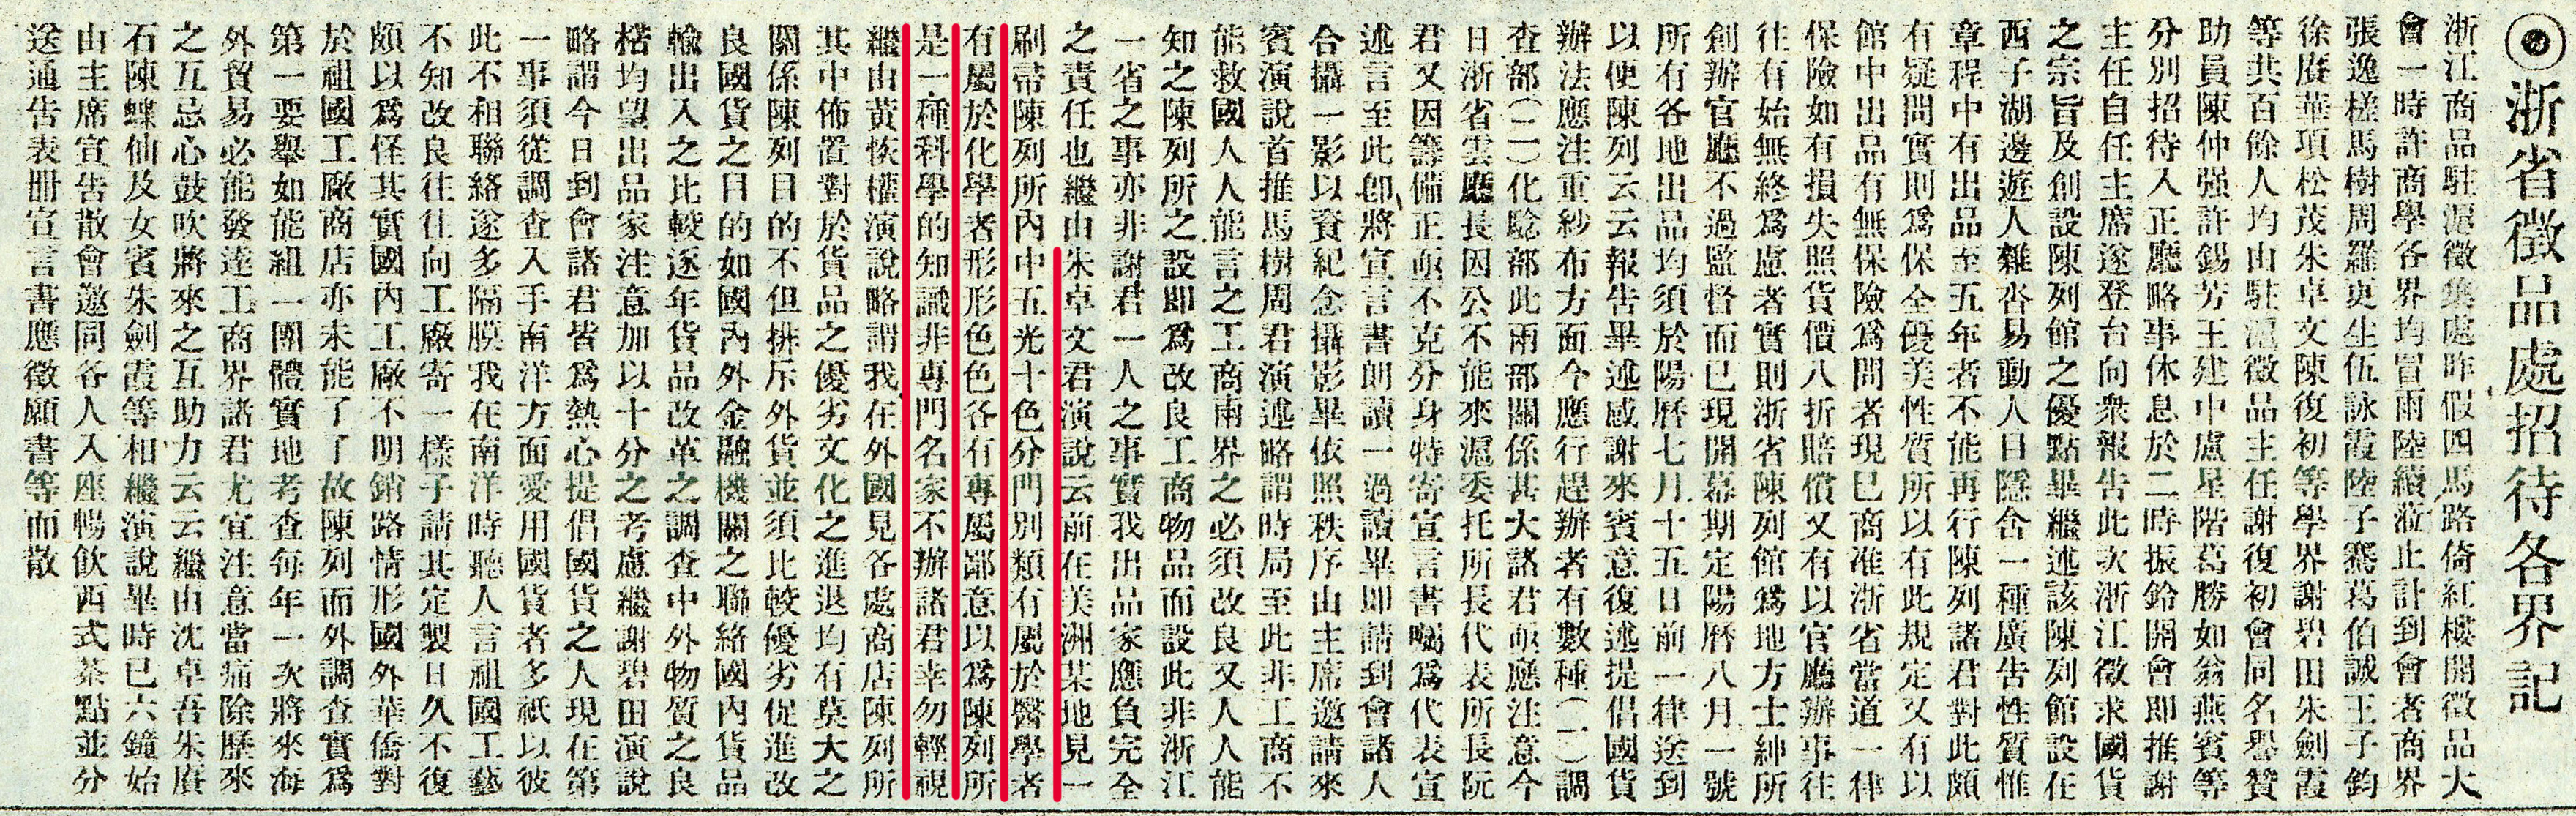 浙省徵品處招待各界記
浙江商品駐滬徵集處昨假四馬路倚紅樓開徵品大
會一時許商學各界均冒雨陸續蒞止計到會者商界
張逸槎馬樹周羅更生伍詠霞陸子騫葛伯誠王子鈞
徐賡華項松茂朱卓文陳復初等學界謝碧田朱劍霞
等共百餘人均由駐滬徵品主任謝復初會同名譽贊
助員陳仲强許錫芳王建中盧星階葛勝如翁燕賓等
分別招待入正廳略事休息於二時振鈴開會即推謝
主任自任主席遂登台向衆報告此次浙江徵求國貨
之宗旨及創設陳列館之優點畢繼述該陳列館設在
西子湖邊遊人雜沓易動人目隱含一種廣告性質惟
章程中有出品至五年者不能再行陳列諸君對此頗
有疑問實則爲保全優美性質所以有此規定又有以
館中出品有無保險爲問者現已商准浙省當道一律
保險如有損失照貨價八折賠償又有以官廳辦事往
往有始無終爲慮者實則浙省陳列館爲地方士紳所
創辦官廳不過監督而已現開幕期定陽曆八月一號
所有各地出品均須於陽曆七月十五日前一律送到
以便陳列云云報告畢述感謝來賓意復述提倡國貨
辦法應注重紗布方面今應行趕辦者有數種(一)調
查部(二)化騐部此兩部關係甚大諸君亟應注意今
日浙省雲廳長因公不能來滬委托所長代表所長阮
君又因籌備正亟不克分身特寄宣言書囑爲代表宣
述言至此卽將宣言書朗讀一過讀畢即請到會諸人
合攝一影以資紀念攝影畢依照秩序由主席邀請來
賓演說首推馬樹周君演述略謂時局至此非工商不
能救國人人能言之工商兩界之必須改良又人人能
知之陳列所之設即爲改良工商物品而設此非浙江
一省之事亦非謝君一人之事實我出品家應負完全
之責任也繼由朱卓文君演說云前在美洲某地見一
刷帚陳列所內中五光十色分門別類有屬於醫學者
有屬於化學者形形色色各有專屬鄙意以爲陳列所
是一種科學的知識非專門名家不辦諸君幸勿輕視
繼由黃恢權演說略謂我在外國見各處商店陳列所
其中佈置對於貨品之優劣文化之進退均有莫大之
關係陳列目的不但排斥外貨並須比較優劣促進改
良國貨之目的如國內外金融機關之聯絡國內貨品
輸出入之比較逐年貨品改革之調查中外物質之良
楛均望出品家注意加以十分之考慮繼謝碧田演說
略謂今日到會諸君皆爲熱心提倡國貨之人現在第
一事須從調查入手南洋方面愛用國貨者多祇以彼
此不相聯絡遂多隔膜我在南洋時聽人言祖國工藝
不知改良往往向工廠寄一樣子請其定製日久不復
頗以爲怪其實國內工廠不明銷路情形國外華僑對
於祖國工廠商店亦未能了了故陳列而外調查實爲
第一要舉如能組一團體實地考查每年一次將來海
外貿易必能發達工商界諸君尤宜注意當痛除歷來
之互忌心鼓吹將來之互助力云云繼由沈卓吾朱賡
石陳蝶仙及女賓朱劍霞等相繼演說畢時已六鐘始
由主席宣告散會邀同各人入座暢飲西式茶點並分
送通告表冊宣言書應徵願書等而散